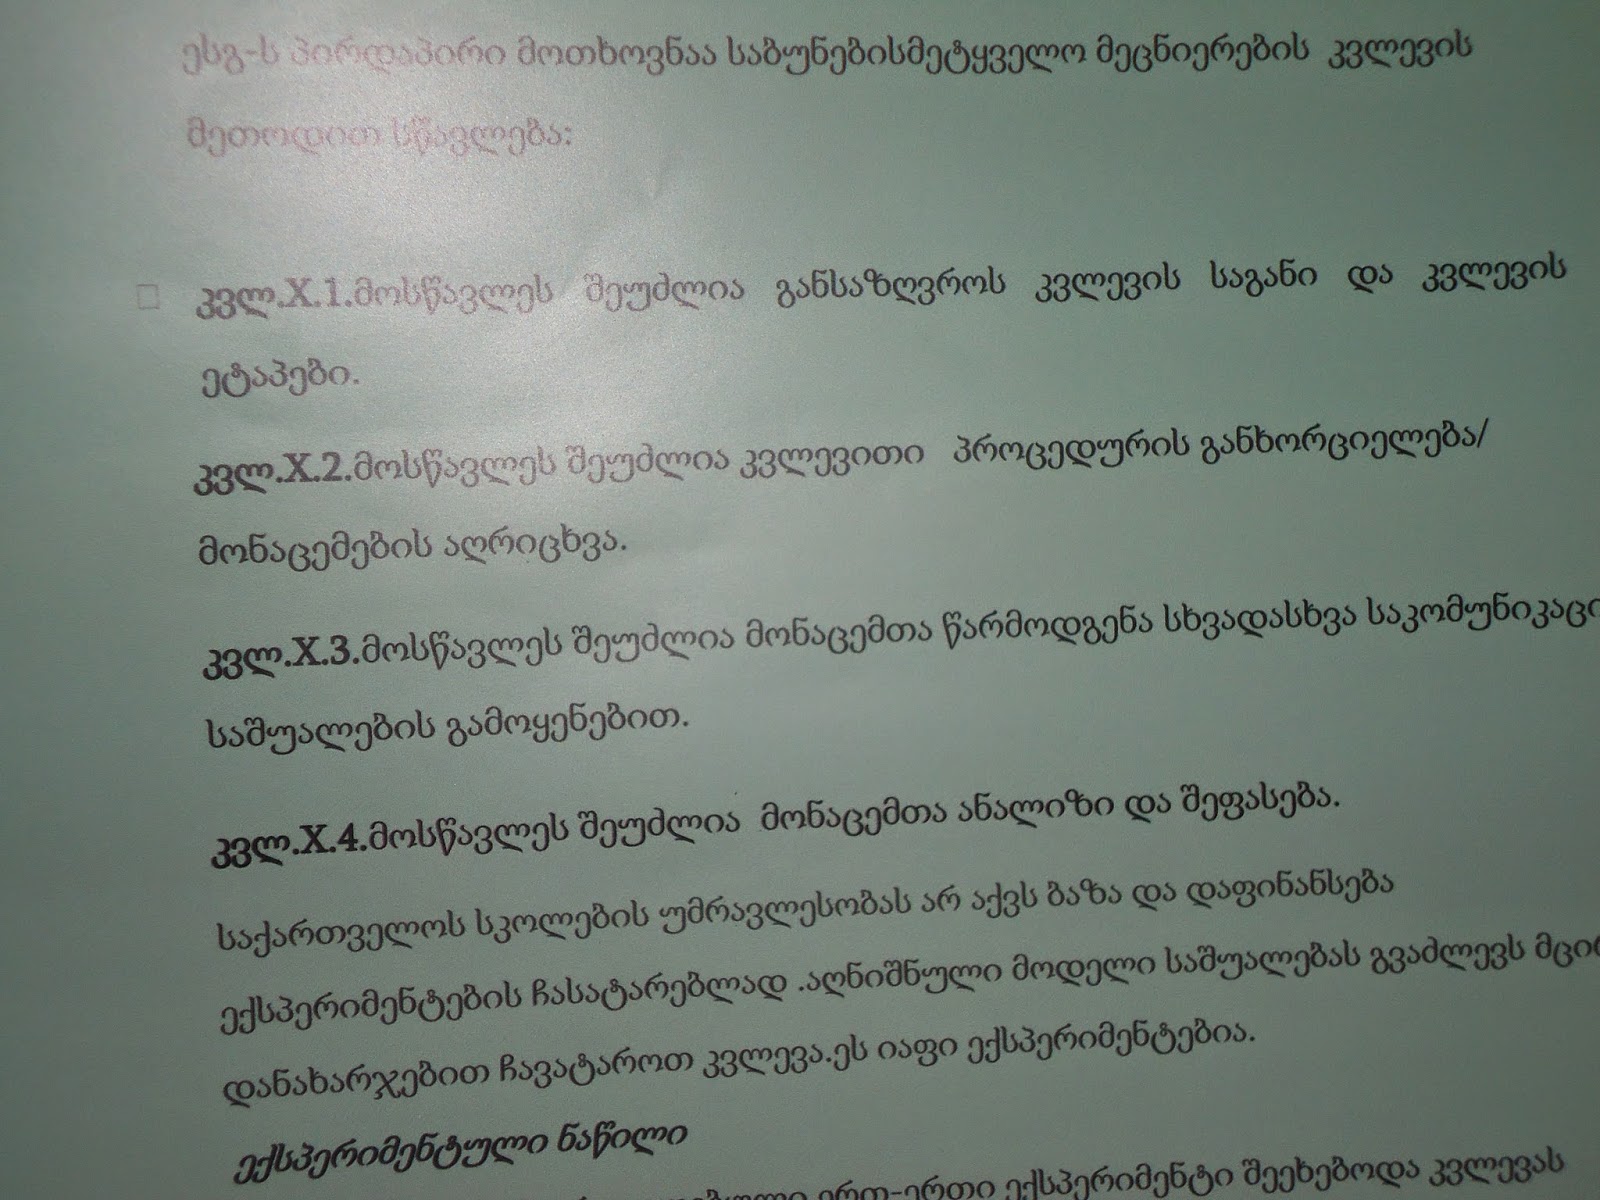 ესგ-ს პირდაპირი მოთხოვნაა საბუნებისმეტყველო მეცნიერების კვლევის
მეთოდით სწავლება:
კვლ.X.1.მოსწავლეს შეუძლია განსაზღვროს კვლევის საგანი და კვლევის
ეტაპები.
კვლ.X.2.მოსწავლეს შეუძლია კვლევითი პროცედურის განხორციელება/
მონაცემების აღრიცხვა.
კვლ.X.3.მოსწავლეს შეუძლია მონაცემთა წარმოდგენა სხვადასხვა
საშუალების გამოყენებით.
კვლ.X.4.მოსწავლეს შეუძლია მონაცემთა ანალიზი და შეფასება.
საქართველოს სკოლების უმრავლესობას არ აქვს ბაზა და დაფინანსება
ექსპერიმენტების ჩასატარებლად .აღნიშნული მოდელი საშუალებას გვაძლევს
დანახარჯებით ჩავატაროთ კვლევა.ეს იაფი ექსპერიმენტებია.
ექსპერიმენტული ნაწილი
ერთ-ერთი ექსპერიმენტი შეეხებოდა კვლევას